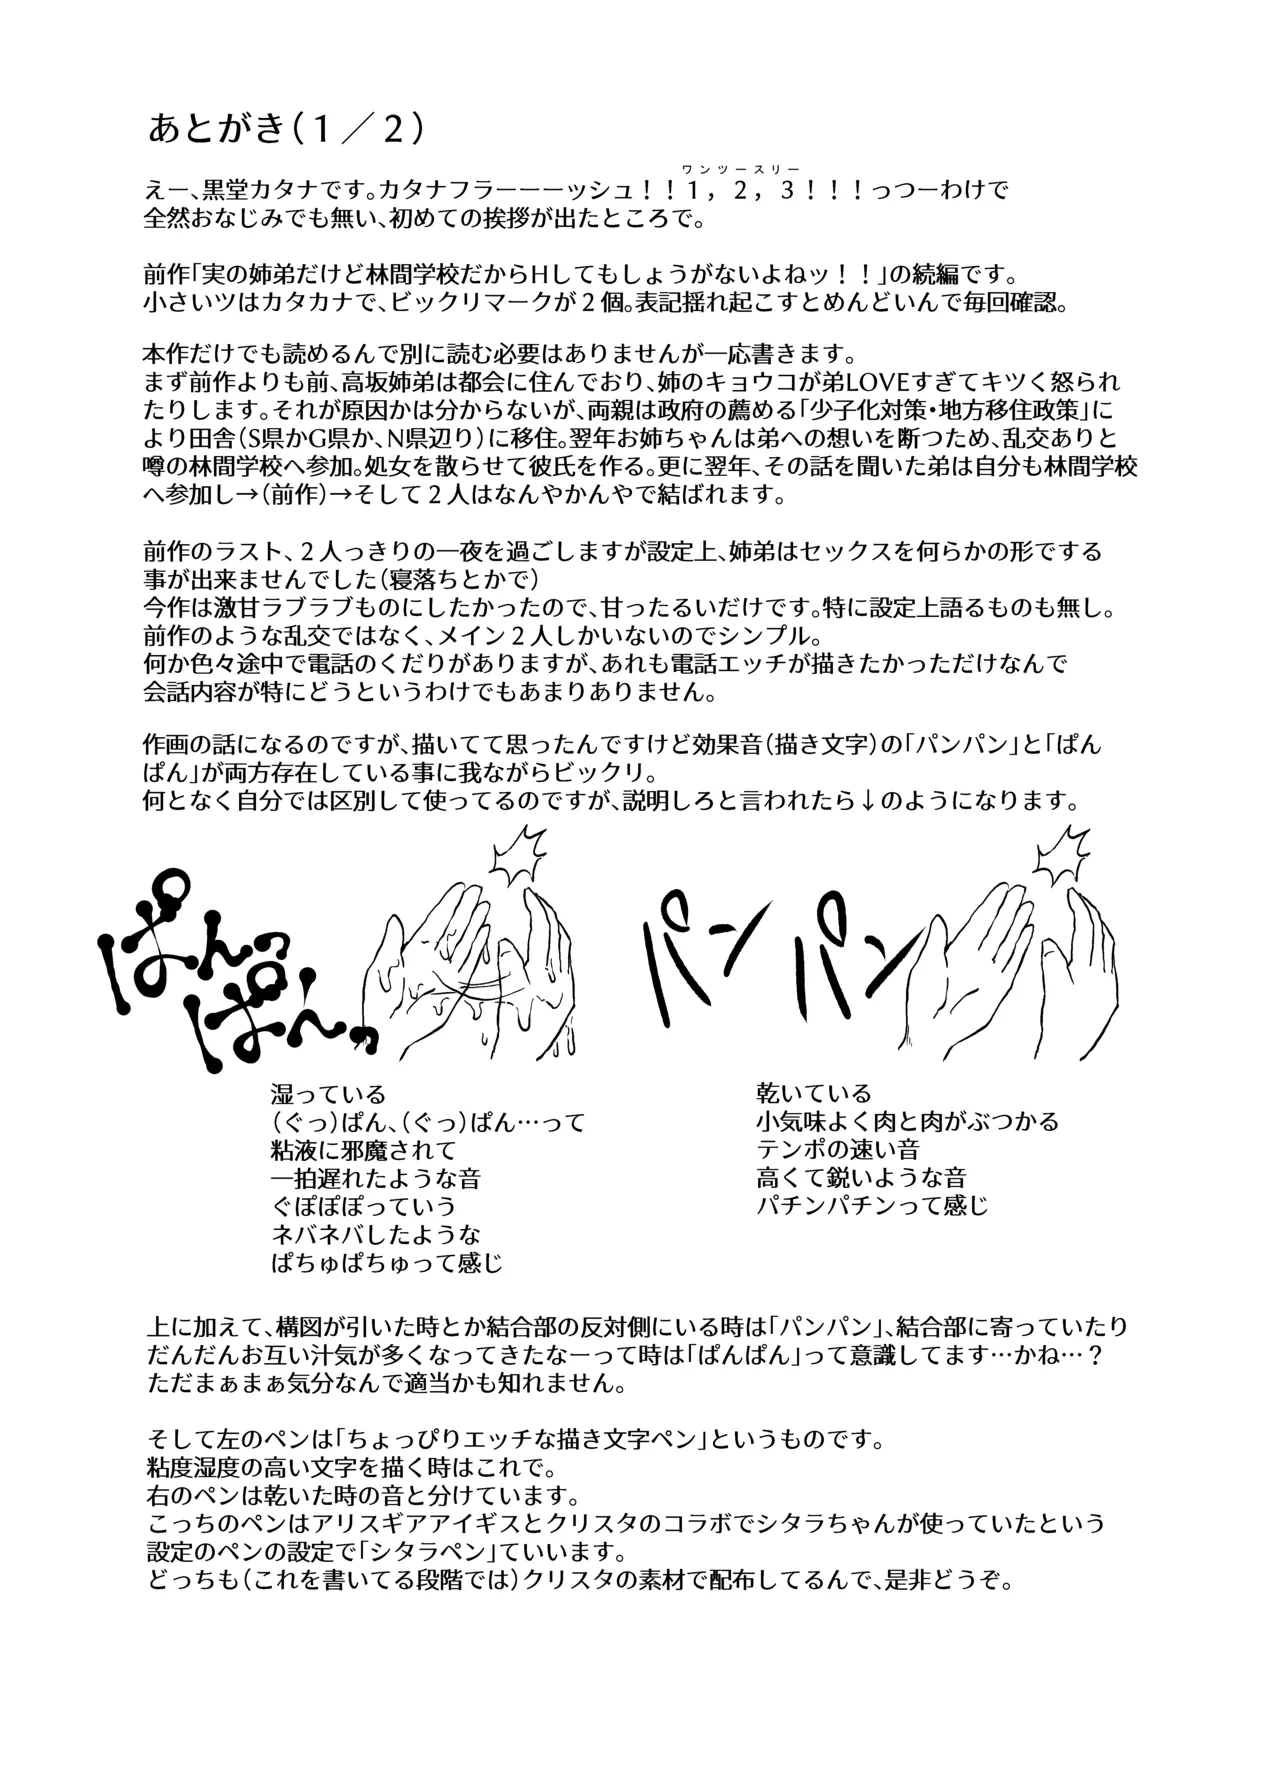 あとがき(1/2)
ワンツースリー
えー、黒堂カタナです。カタナフラーーーッシュ!!1,2,3!!!っつーわけで
全然おなじみでも無い、初めての挨拶が出たところで。
前作「実の姉弟だけど林間学校だからHしてもしょうがないよねッ!!」の続編です。
小さいツはカタカナで、ビックリマークが2個。表記揺れ起こすとめんどいんで毎回確認。
本作だけでも読めるんで別に読む必要はありませんが一応書きます。
まず前作よりも前、高坂姉弟は都会に住んでおり、姉のキョウコが弟LOVEすぎてキツく怒られ
たりします。それが原因かは分からないが、両親は政府の薦める「少子化対策・地方移住政策」に
より田舎(S県かG県か、N県辺り)に移住。翌年お姉ちゃんは弟への想いを断つため、乱交ありと
噂の林間学校へ参加。処女を散らせて彼氏を作る。更に翌年、その話を聞いた弟は自分も林間学校
へ参加し→(前作)→そして2人はなんやかんやで結ばれます。
前作のラスト、2人っきりの一夜を過ごしますが設定上、姉弟はセックスを何らかの形でする
事が出来ませんでした(寝落ちとかで)
今作は激甘ラブラブものにしたかったので、甘ったるいだけです。特に設定上語るものも無し。
前作のような乱交ではなく、メイン2人しかいないのでシンプル。
何か色々途中で電話のくだりがありますが、あれも電話エッチが描きたかっただけなんで
会話内容が特にどうというわけでもあまりありません。
作画の話になるのですが、描いてて思ったんですけど効果音(描き文字)の「パンパン」と「ぱん
ぱん」が両方存在している事に我ながらビックリ。
何となく自分では区別して使ってるのですが、説明しろと言われたら↓のようになります。
ぱんっ
ぱんっ
パン
パン
湿っている
(ぐっ)ぱん、(ぐっ)ぱん…って
粘液に邪魔されて
一拍遅れたような音
ぐぽぽぽっていう
ネバネバしたような
ぱちゅぱちゅって感じ
乾いている
小気味よく肉と肉がぶつかる
テンポの速い音
高くて鋭いような音
パチンパチンって感じ
上に加えて、構図が引いた時とか結合部の反対側にいる時は「パンパン」、結合部に寄っていたり
だんだんお互い汁気が多くなってきたなーって時は「ぱんぱん」って意識してます…かね…?
ただまぁまぁ気分なんで適当かも知れません。
そして左のペンは「ちょっぴりエッチな描き文字ペン」というものです。
粘度湿度の高い文字を描く時はこれで。
右のペンは乾いた時の音と分けています。
こっちのペンはアリスギアアイギスとクリスタのコラボでシタラちゃんが使っていたという
設定のペンの設定で「シタラペン」ていいます。
どっちも(これを書いてる段階では)クリスタの素材で配布してるんで、是非どうぞ。